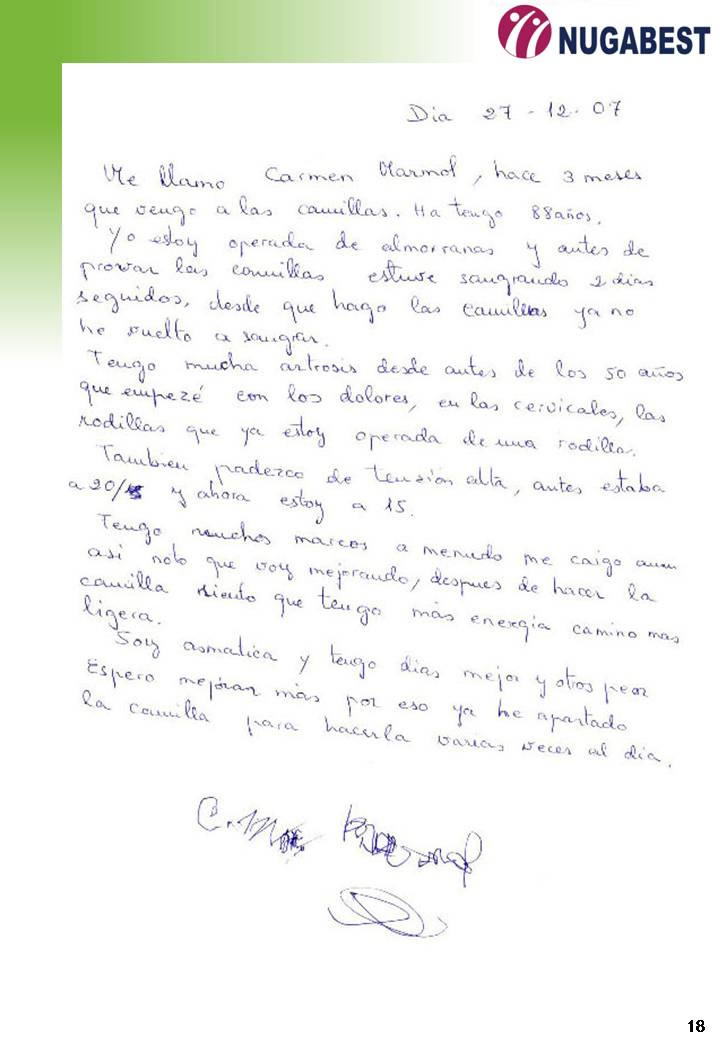 NUGABEST
Dia 27-12-07
Me llamo Carmen Marmol, hace 3 meses
que vengo a las camillas. Ha tengo 88 años.
Yo estoy operada de almorranas y antes de
provar las camillas estuve sangrando 2 dias
seguidos, desde que hago las camillas ya no
he vuelto a sangrar.
Tengo mucha artrosis desde antes de los 50 años
que empezé con los dolores, en las cervicales, las
rodillas que ya estoy operada de una rodilla.
Tambien padezco de tensión alta, antes estaba
a 20/ y ahora estoy a 15.
Tengo muchos mareos a menudo me caigo aun
asi noto que voy mejorando, despues de hacer la
camilla siento que tengo más energia camino mas
ligera.
Soy asmatica y tengo dias mejor y otros peor
Espero mejorar más por eso ya he apartado
la camilla para hacerla varias veces al dia.
18